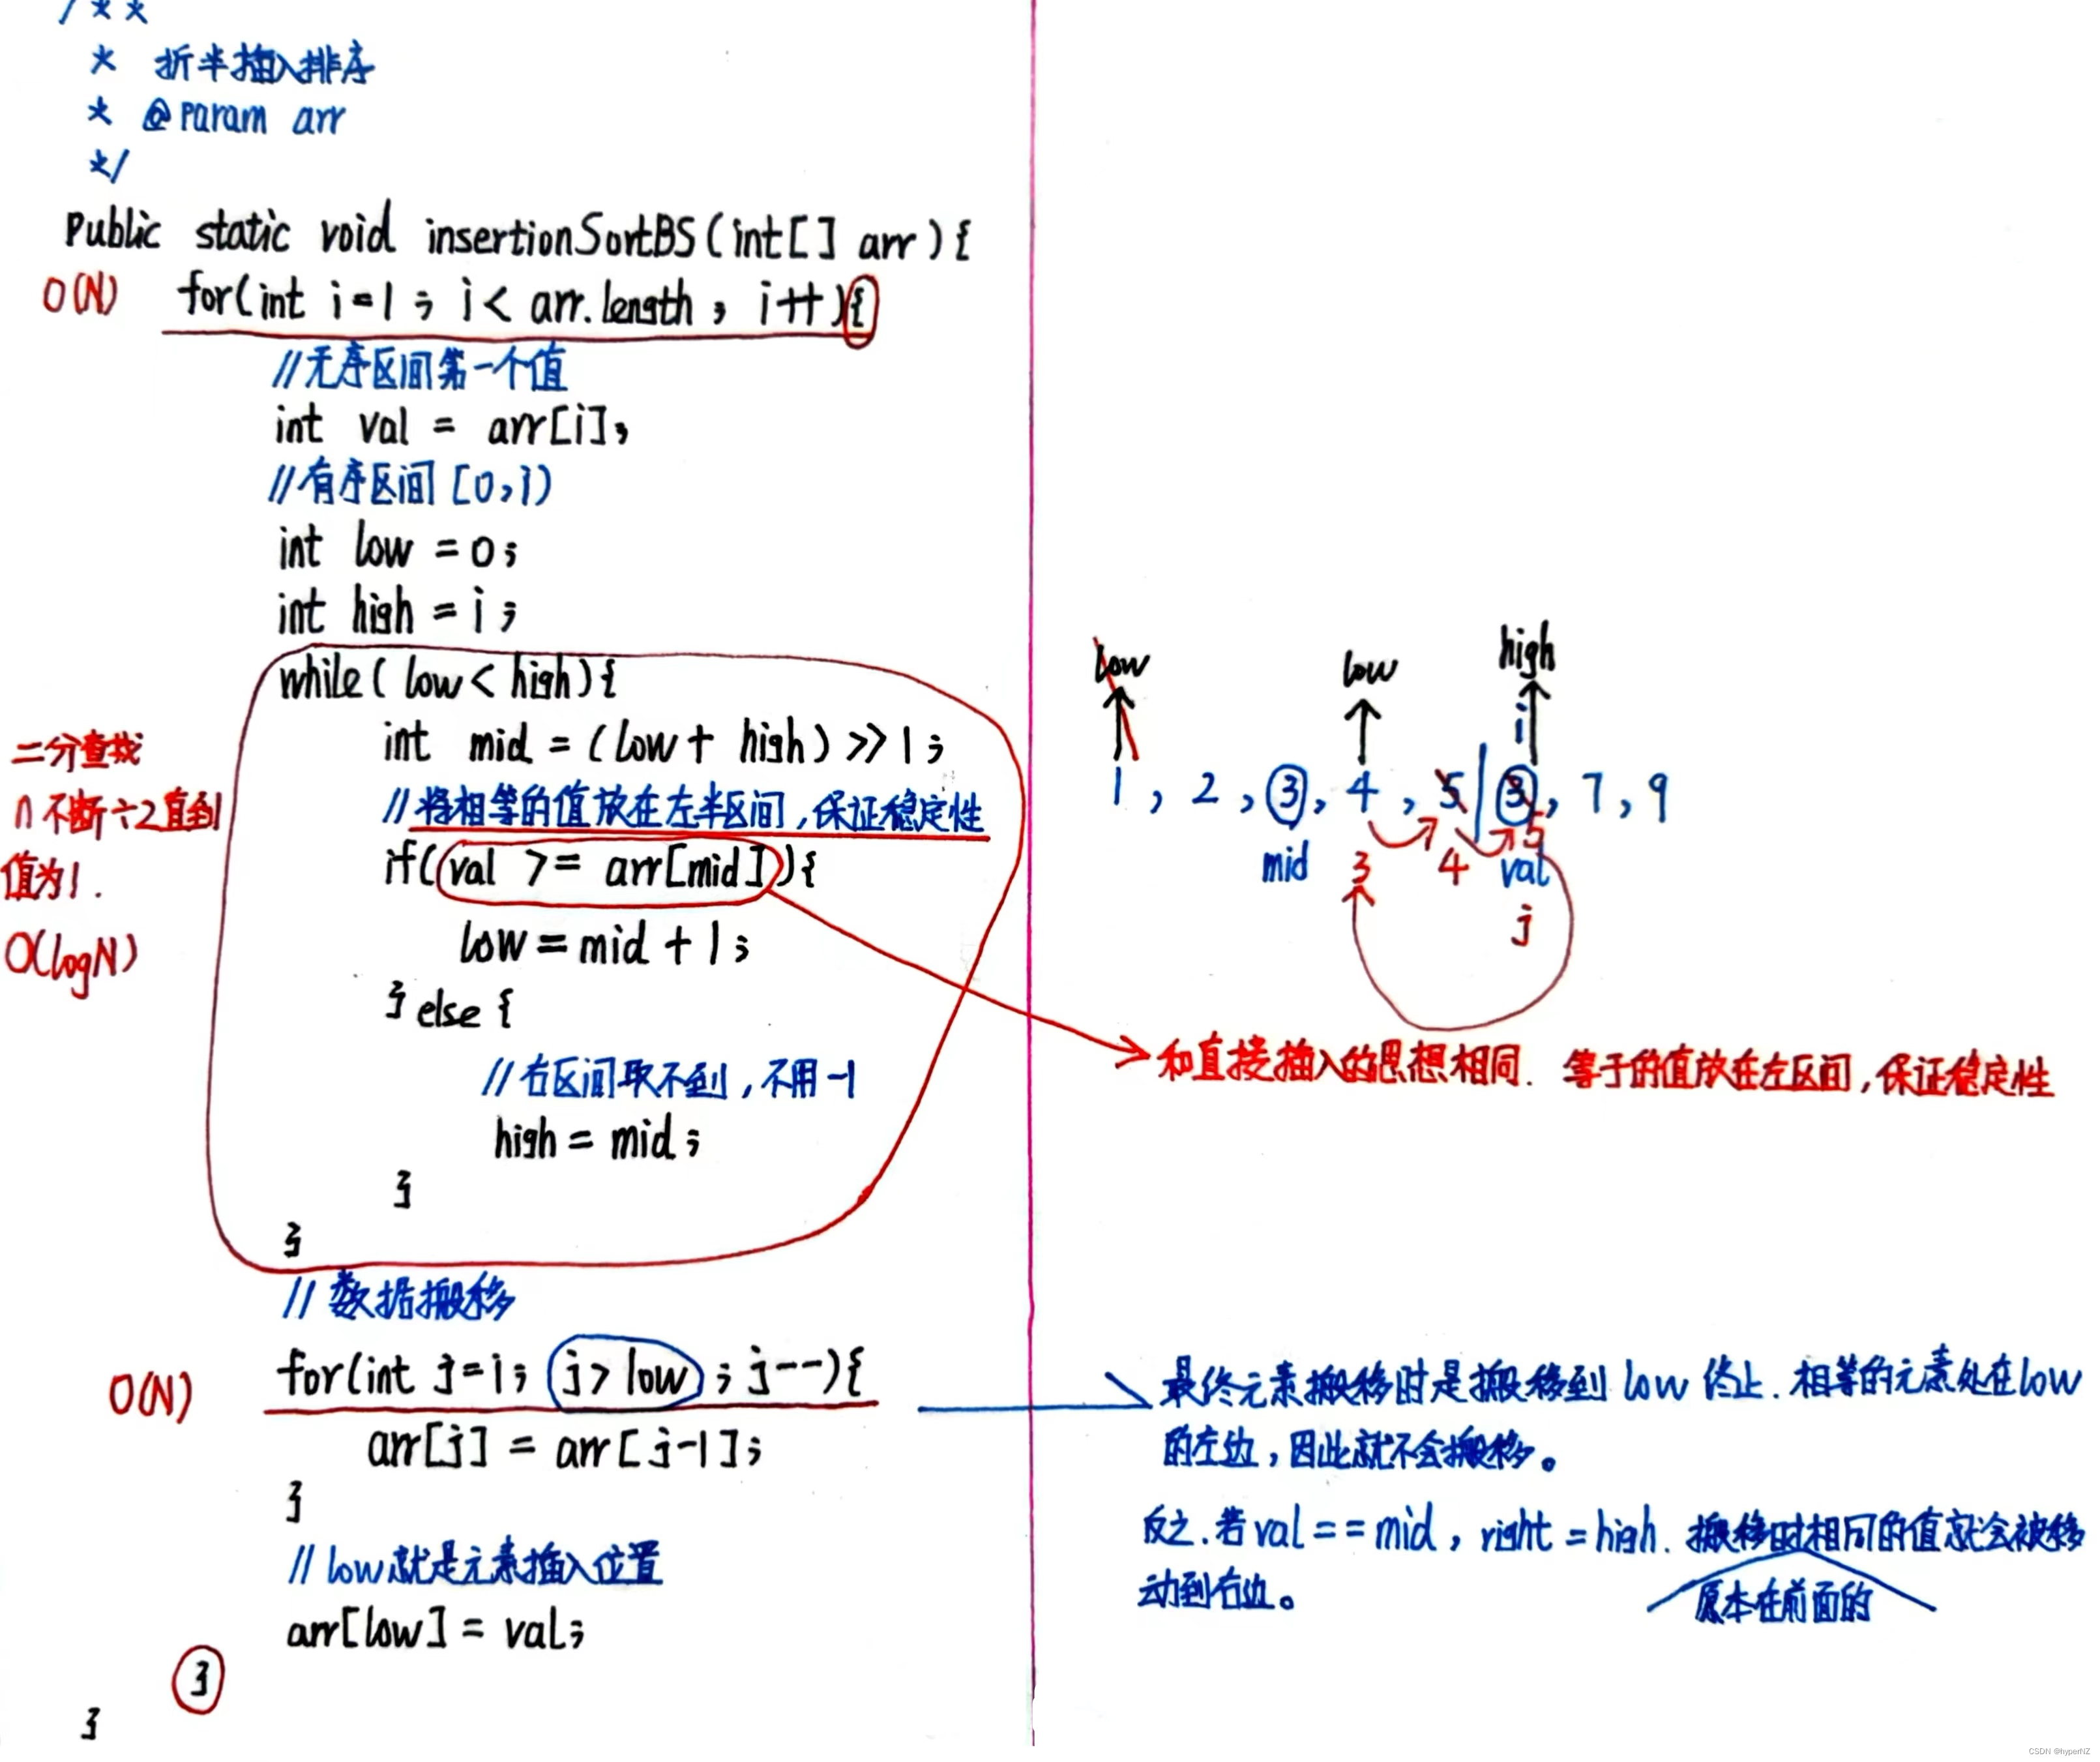 /**
* 折半插入排序
* @param arr
*/
Public static void insertionSortBS(int[] arr){
O(N) for(int i=1; i< arr.length; i++){
//无序区间第一个值
int val = arr[i];
//有序区间[0,i)
int low =0;
int high = i;
while( low< high){
int mid = (low+ high) >>1;
//将相等的值放在左半区间,保证稳定性
if( val >= arr[mid] ){
low = mid + 1;
}else {
//右区间取不到,不用-1
high = mid;
}
}
二分查找
n不断÷2直到
值为1.
O(logN)
//数据搬移
O(N) for(int j=i; j> low; j--){
arr[j] = arr[j-1];
}
//low就是元素插入位置
arr[low] = val;
}
}
low low high
i
1, 2, 3, 4, 5 | 3, 7, 9
5
mid 3 4 val
j
和直接插入的思想相同. 等于的值放在左区间,保证稳定性
最终元素搬移时是搬移到low终止.相等的元素处在low
的左边,因此就不会搬移。
反之.若val==mid, right=high. 搬移时相同的值就会被移
动到右边。
原本在前面的
CSDN @hyperNZ